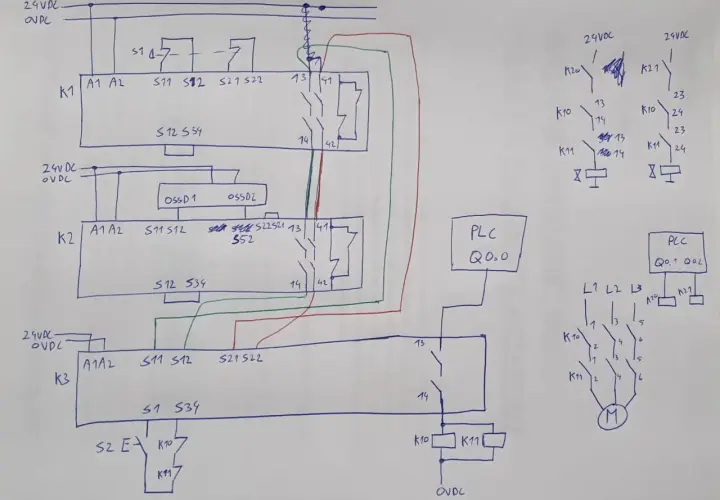 24VDC
0VDC
S1
A1 A2 S11 S12 S21 S22 13 41
K1
14 42
S12 S34
24VDC
0VDC
OSSD1 OSSD2
A1 A2 S11 S12 S22 S21 13 41
S52
K2
S12 S34 14 42
24VDC
0VDC
A1 A2 S11 S12 S21 S22 13
K3
14
S1 S34
S2 E K10
K11
K10 K11
0VDC
PLC
Q0.0
24VDC 24VDC
K20 K21
13 23
K10 14 K10 24
13 23
K11 14 K11 24
PLC
Q0.1
K20 K21
L1 L2 L3
1 3 5
K10 2 4 6
1 3 5
K11 2 4 6
M